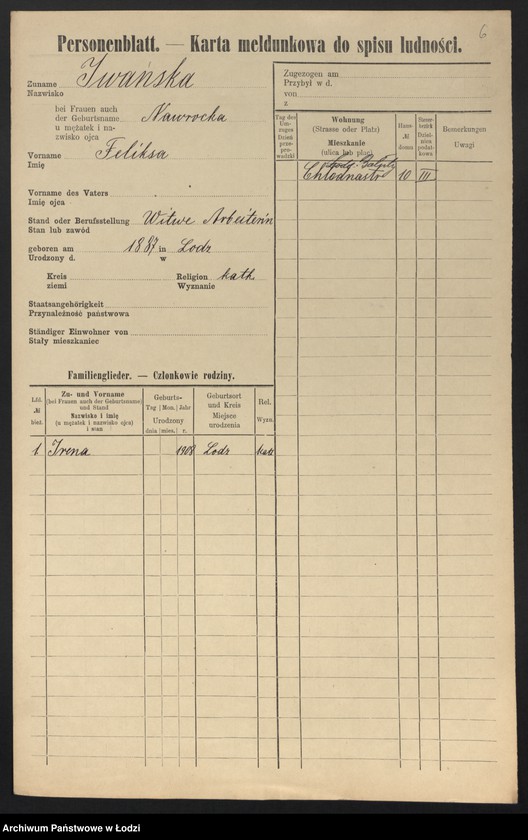 6
Personenblatt. — Karta meldunkowa do spisu ludności.
Zuname Iwańska
Nazwisko
bei Frauen auch
der Geburtsname Nawrocka
u mężatek i na-
zwisko ojca
Vorname Feliksa
Imię
Vorname des Vaters
Imię ojca
Stand oder Berufsstellung Witwe Arbeiterin
Stan lub zawód
geboren am 1887 in Lodz
Urodzony d. w
Kreis Religion kath
ziemi Wyznanie
Staatsangehörigkeit
Przynależność państwowa
Ständiger Einwohner von
Stały mieszkaniec
Familienglieder. — Członkowie rodziny.
Lfd.
№
bież.
Zu- und Vorname
(bei Frauen auch der Geburtsname)
und Stand
Nazwisko i imię
(u mężatek i nazwisko ojca)
i stan
Geburts-
Tag Mon. Jahr
Urodzony
dnia mies. r.
Geburtsort
und Kreis
Miejsce
urodzenia
Rel.
Wyzn.
1. Irena 1908 Lodz kath
Zugezogen am
Przybył w d.
von
z
Tag des
Um-
zuges
Dzień
prze-
prowadzki
Wohnung
(Strasse oder Platz)
Mieszkanie
(ulica lub plac)
Haus-
№
domu
Steuer-
bezirk
Dziel-
nica
podat-
kowa
Bemerkungen
Uwagi
Chłodnastr 10 III
Archiwum Państwowe w Łodzi